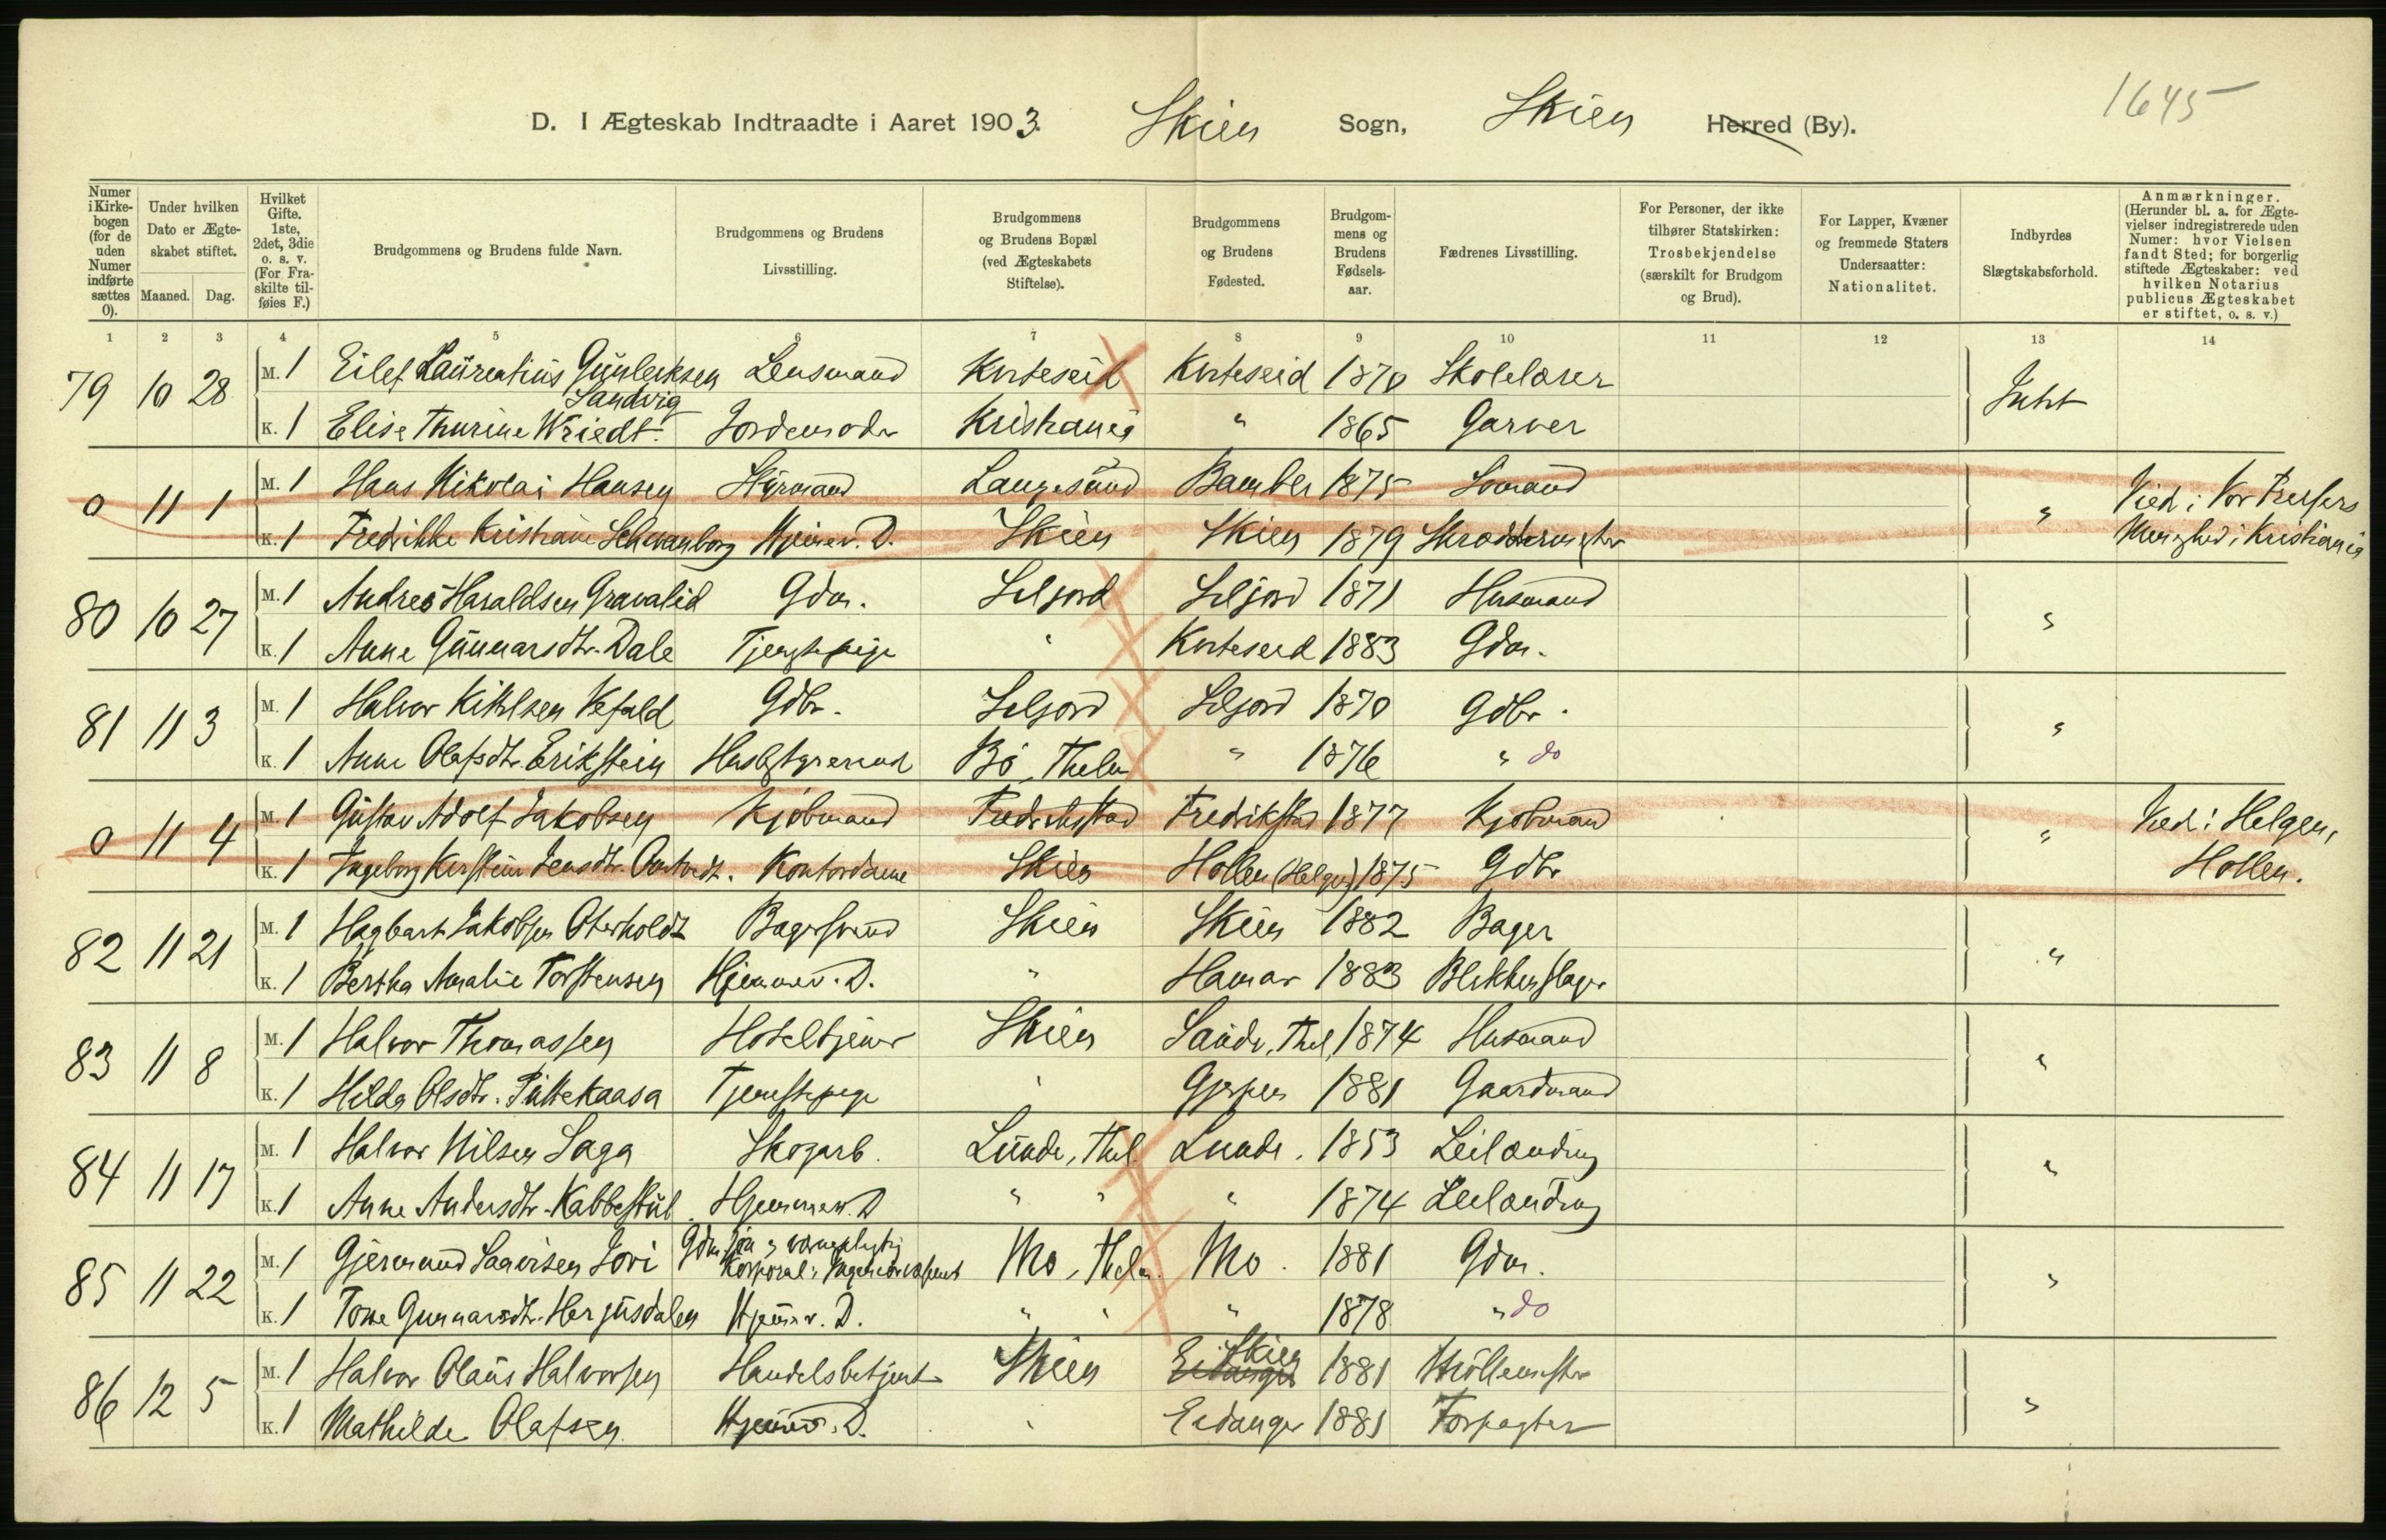 1645
D. I Ægteskab Indtraadte i Aaret 1903. Skien Sogn, Skien Herred (By).
Numer i Kirkebogen (for de uden Numer indførte sættes 0).
Under hvilken Dato er Ægteskabet stiftet.
Maaned. Dag.
Hvilket Gifte. 1ste, 2det, 3die o. s. v. (For Fraskilte tilføies F.)
Brudgommens og Brudens fulde Navn.
Brudgommens og Brudens Livsstilling.
Brudgommens og Brudens Bopæl (ved Ægteskabets Stiftelse).
Brudgommens og Brudens Fødested.
Brudgommens og Brudens Fødselsaar.
Fædrenes Livsstilling.
For Personer, der ikke tilhører Statskirken: Trosbekjendelse (særskilt for Brudgom og Brud).
For Lapper, Kvæner og fremmede Staters Undersaatter: Nationalitet.
Indbyrdes Slægtskabsforhold.
Anmærkninger. (Herunder bl. a. for Ægtevielser indregistrerede uden Numer: hvor Vielsen fandt Sted; for borgerlig stiftede Ægteskaber: ved hvilken Notarius publicus Ægteskabet er stiftet, o. s. v.)
1 2 3 4 5 6 7 8 9 10 11 12 13 14
79 10 28 M. 1 Eilef Laurentius Gunleiksen Sandvig Lensmand Kviteseid Kviteseid 1870 Skolelærer Intet
K. 1 Elise Thurine Wriedt Jordemoder Kristiania " 1865 Garver
0 11 1 M. 1 Hans Nikolai Hansen Styrmand Langesund Bamble 1875 Sømand " Vied i Vor Frelsers
K. 1 Fredrikke Kristiane Schwanborg Hjemmev. D. Skien Skien 1879 Skræddermester Menighed i Kristiania
80 10 27 M. 1 Andres Haraldsen Gravalid Gdm. Seljord Seljord 1871 Husmand "
K. 1 Anne Gunnarsdtr. Dale Tjenstepige " Kviteseid 1883 Gdm.
81 11 3 M. 1 Halvor Kittilsen Vefald Gdbr. Seljord Seljord 1870 Gdbr. "
K. 1 Anne Olafsdtr. Erikstein Husbestyrerinde Bø, Thelm " 1876 " do
0 11 4 M. 1 Gustav Adolf Jakobsen Kjøbmand Fredrikstad Fredrikstad 1877 Kjøbmand " Vied i Helgen,
K. 1 Ingeborg Kerstine Jensdtr. Kontordame Skien Hollen (Helgen) 1875 Gdbr. Hollen.
82 11 21 M. 1 Hagbart Jakobsen Oterholdt Bagersvend Skien Skien 1882 Bager "
K. 1 Bertha Amalie Torstensen Hjemmev. D. " Hamar 1883 Blikkenslager
83 11 8 M. 1 Halvor Thomassen Hoteltjener Skien Saude, Thel. 1874 Husmand "
K. 1 Hilda Olsdtr. Puttekaasa Tjenstepige " Gjerpen 1881 Gaardmand
84 11 17 M. 1 Halvor Nilsen Saga Skogarb. Lunde, Thel. Lunde. 1853 Leilænding "
K. 1 Anne Andersdtr. Kabbestul Hjemmev. D " " " 1874 Leilænding
85 11 22 M. 1 Gjermund Saavisen Jori Gdm. Søn og værnepligtig Korporal i Mo, Thelm. Mo. 1881 Gdm. "
K. 1 Tone Gunnarsdtr. Herjusdalen Hjemmev. D. " " " 1878 " do
86 12 5 M. 1 Halvor Olaus Halvorsen Handelsbetjent Skien Eidanger Skien 1881 Møllemester "
K. 1 Mathilde Olafsen Hjemmev. D. " Eidanger 1881 Forpagter